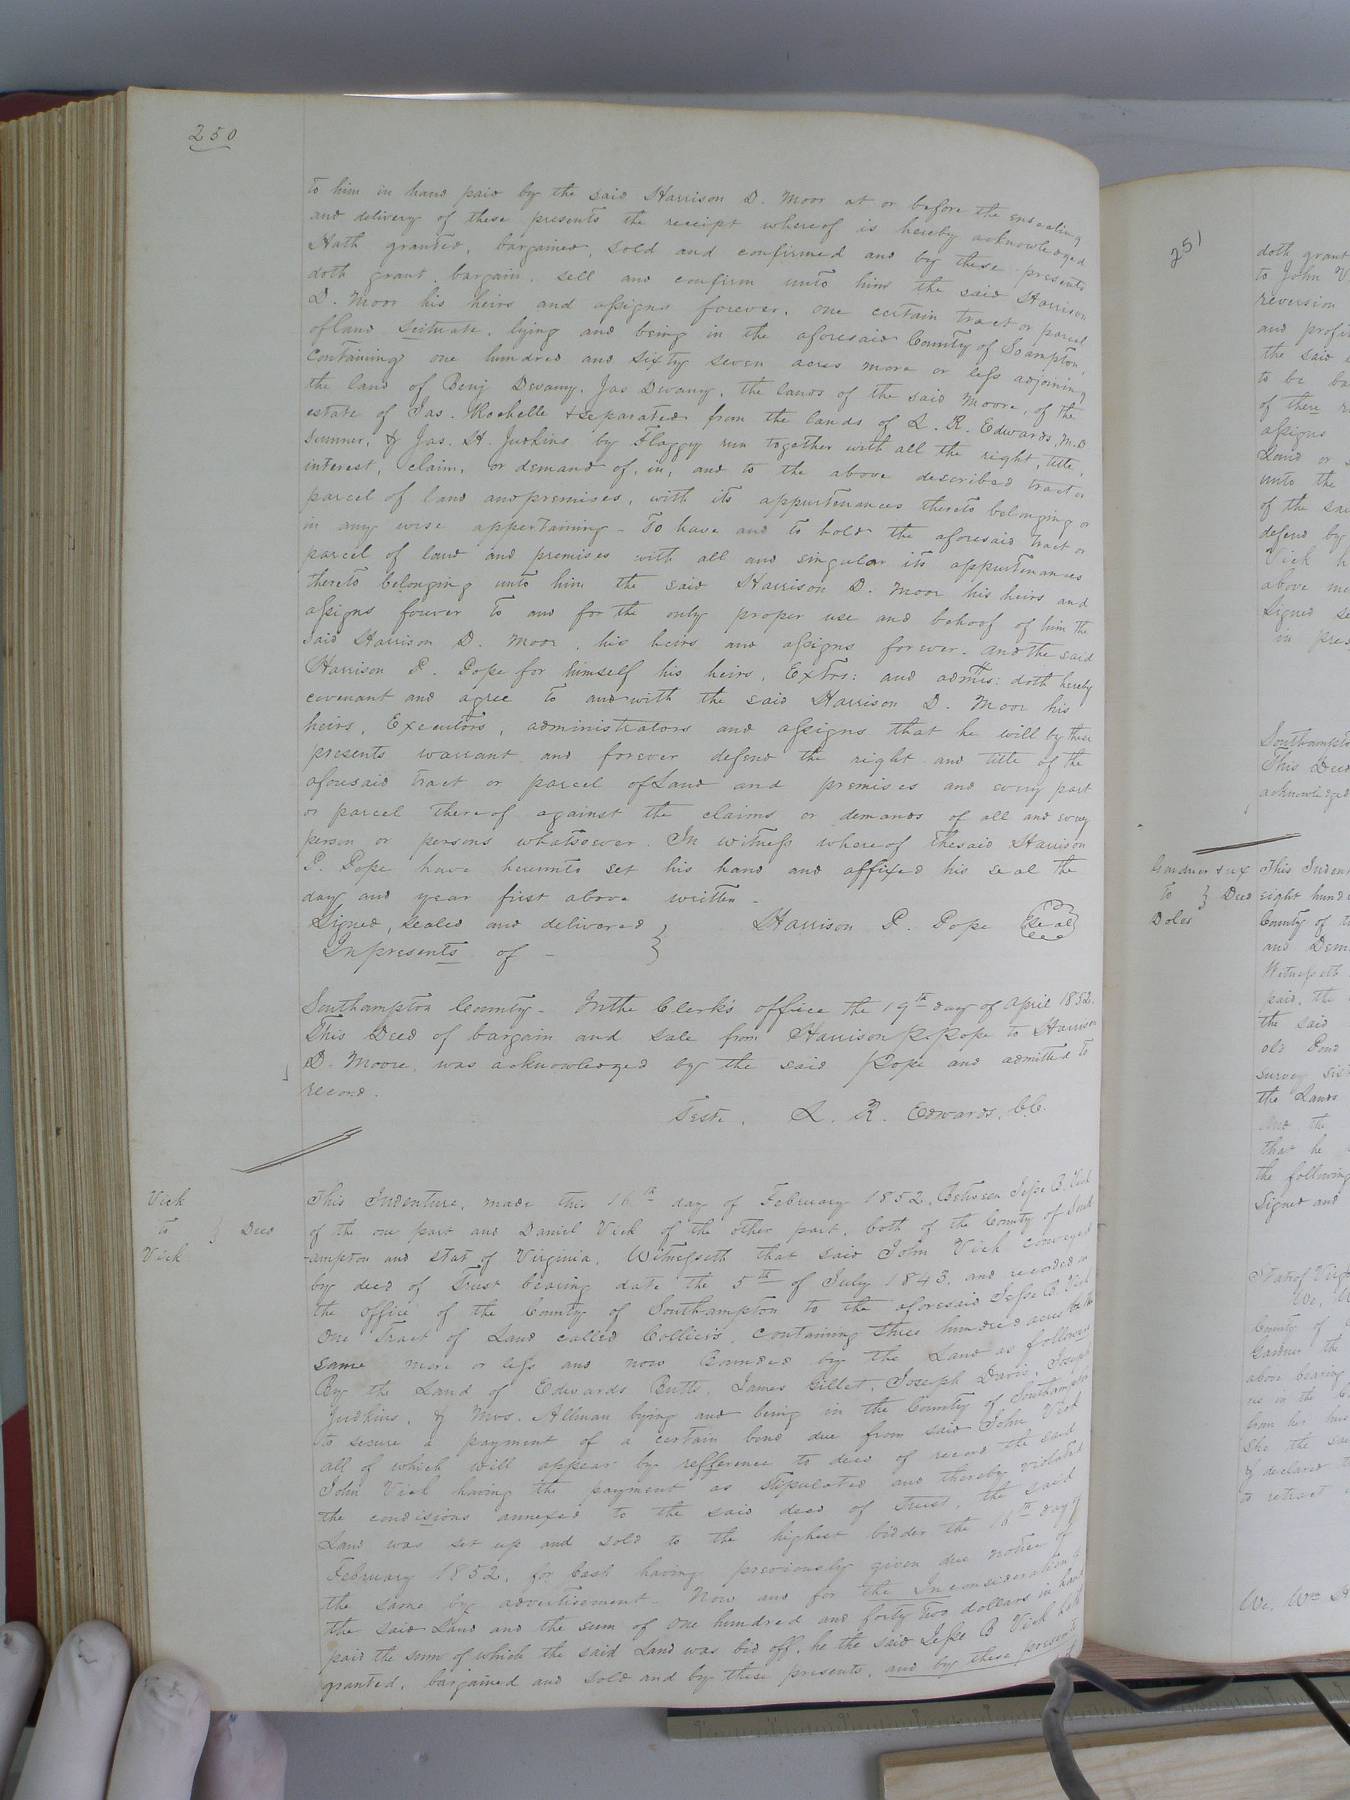 250
to him in hand paid by the said Harrison D. Moor at or before the ensealing
and delivery of these presents the receipt whereof is hereby acknowledged
Hath granted, bargained, sold and confirmed and by these presents
doth grant, bargain, sell and confirm unto him the said Harrison
D. Moor his heirs and assigns forever, one certain tract or parcel
of land scituate, lying and being in the aforesaid County of Soampton,
containing one hundred and sixty seven acres more or less adjoining
the land of Benj Devany, Jas Devany, the lands of the said Moore, of the
estate of Jas. Rochelle & separated from the lands of L. R. Edwards, M. D
Sumner, & Jas. H. Judkins by Flaggy run together with all the right, title,
interest, claim, or demand of, in, and to the above described tract or
parcel of land and premises, with its appurtenances thereto belonging or
in any wise appertaining - To have and to hold the aforesaid tract or
parcel of land and premises with all and singular its appurtenances
thereto belonging unto him the said Harrison D. Moor his heirs and
assigns forever to and for the only proper use and behoof of him the
said Harrison D. Moor, his heirs and assigns forever. And the said
Harrison P. Pope for himself his heirs, Extrs: and admtrs: doth hereby
covenant and agree to and with the said Harrison D. Moor his
heirs, Executors, administrators and assigns that he will by these
presents warrant and forever defend the right and title of the
aforesaid tract or parcel of Land and premises and every part
or parcel thereof against the claims or demands of all and every
person or persons whatsoever. In witness whereof the said Harrison
P. Pope have hereunto set his hand and affixed his seal the
day and year first above written -
Signed, sealed and delivered } Harrison P. Pope Seal
In presents of -
Southampton County - In the Clerk's office the 19th day of April 1852.
This Deed of bargain and sale from Harrison P. Pope to Harrison
D. Moore, was acknowledged by the said Pope and admitted to
record.
Teste, L. R. Edwards, C.C.
Vick
to } Deed
Vick
This Indenture, made this 16th day of February 1852, Between Jesse B. Vick
of the one part and Daniel Vick of the other part, both of the County of South
-ampton and Stat of Virginia, Witnesseth that said John Vick conveyed
by deed of Trust bearing date the 5th of July 1843, and recorded in
the office of the County of Southampton to the aforesaid Jesse B. Vick
One Tract of Land called Colliers, containing three hundred acres be the
same more or less and now Bounded by the Land as follows
By the Land of Edwards Butts, James Gillet, Joseph Davis, Joseph
Judkins, & Mrs. Allman lying and being in the County of Southampton
to secure a payment of a certain bond due from said John Vick
all of which will appear by refference to deed of record the said
John Vick having the payment as Stipulated and thereby violated
the condisions annexed to the said deed of Trust, the said
Land was set up and sold to the highest bidder the 16th day of
February 1852, for Cash having previously given due notice of
the same by advertisement - Now and for the In consideration of
the said Land and the sum of One hundred and forty two dollars in hand
paid the sum of which the said Land was bid off, he the said Jesse B Vick hath
granted, bargained and sold and by these presents, and by these presents
251
doth grant
to John V
reversion
and profi
the said
to be ba
of there
assigns
Land or
unto the
of the sai
defend by
Vick h
above me
Signed se
in pres
Southampto
This Deed
acknowledged
Gardner & ux
to } Deed
Doles
This Inden
eight hund
County of
and Dem
Witnesseth
paid, the
the said
old Pond
survey
the Lands
And the
that he
the following
Signed and
State of Virg
We,
County of
Gardner the
above bearing
us in the
from her hus
She the sai
& declared
to retract
We, Wm